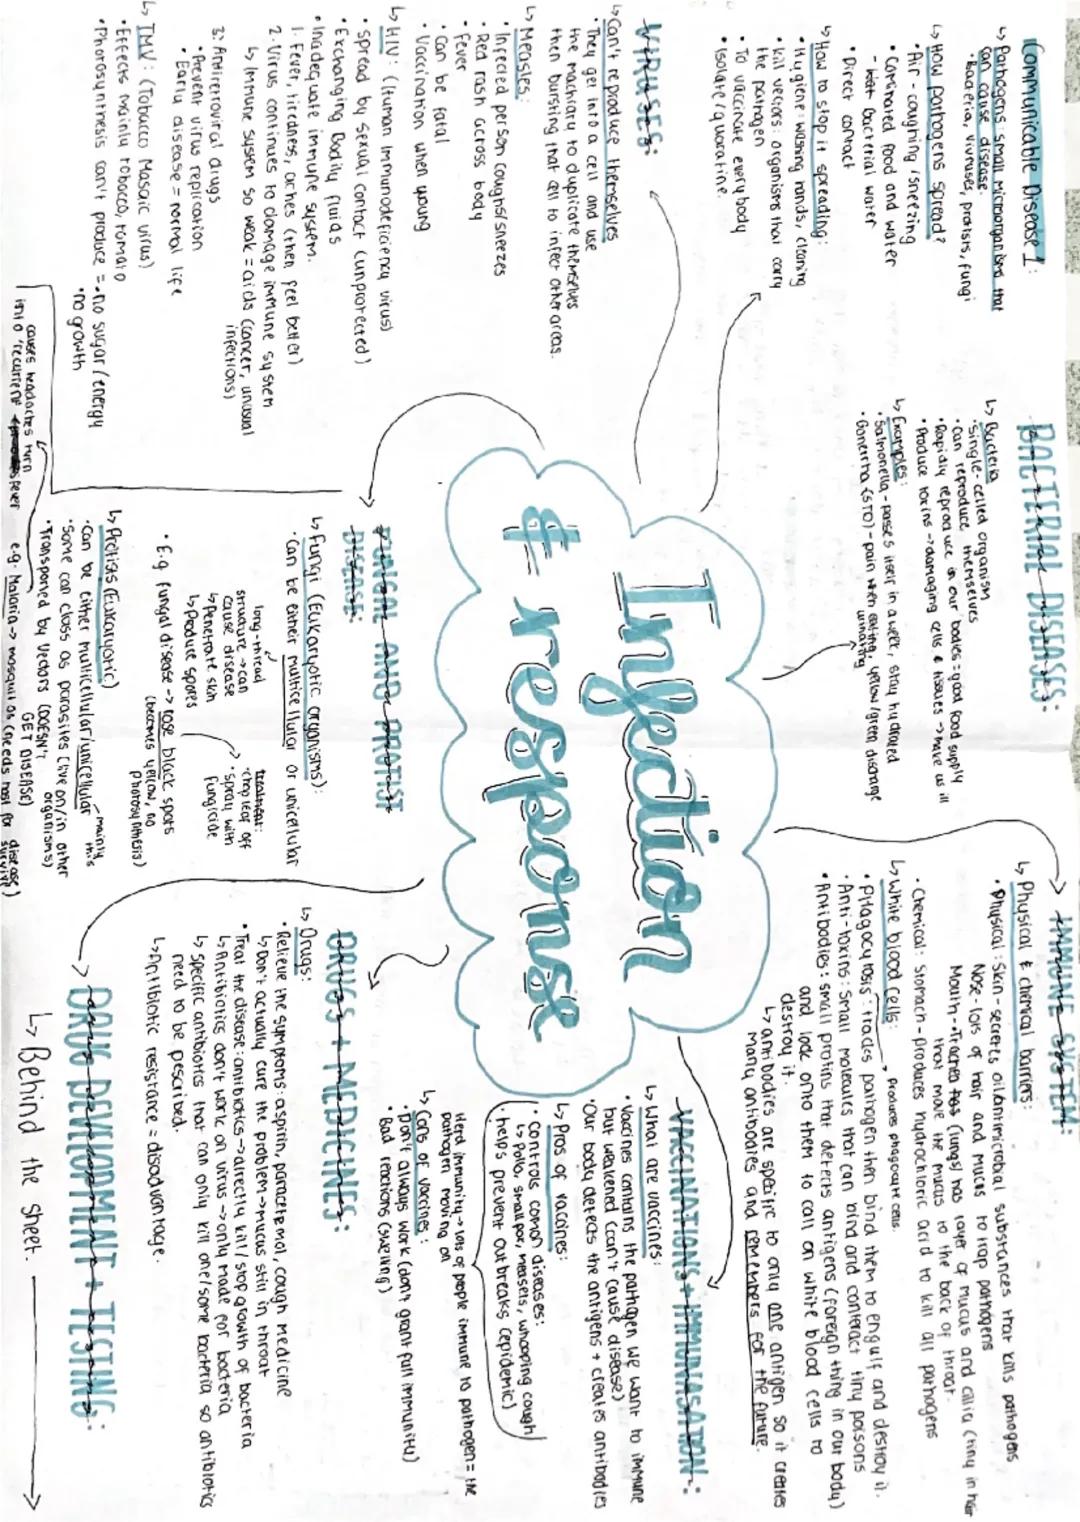 Communicable Disease 1:
↳ Pathogens: small microorganisms that
can cause disease.
• bacteria, viruses, protists, fungi
↳ How pathogens spread?
• Air - coughing/sneezing
• Contaminated food and water
- bacterial water
• Direct contact
↳ How to stop it spreading:
• Hygiene: washing hands, cleaning
• Kill vectors: organisms that carry
the pathogen
• To vaccinate every body
• Isolate/quarantine.
BACTERIAL DISEASES:
↳ Bacteria
• Single-celled organism
• Can reproduce themselves
• Rapidly reproduce in our bodies = good food supply
• Produce toxins → damaging cells & tissues → make us ill
↳ Examples:
• Salmonella - passes itself in a week, stay hydrated
• Gonerrha (STD) - pain when eating, yellow/green discharge
urinating
IMMUNE SYSTEM:
↳ Physical & chemical barriers:
• Physical: Skin - secretes oil/antimicrobial substances that kills pathogens
Nose - lots of hair and mucus to trap pathogens
Mouth - (lungs) has layer of mucus and cillia (tiny in hair
that move the mucus to the back of throat.
• Chemical: Stomach - produces hydrochloric acid to kill all pathogens
↳ White blood cells: → Produces phagocyte cells.
• Phagocytosis: tracks pathogen then bind them to engulf and destroy it.
• Anti-toxins: Small molecules that can bind and conteract tiny poisons
• Antibodies: small protins that detects antigens (foreign thing in our body)
and lock onto them to call on white blood cells to
destroy it.
↳ antibodies are specific to only one antigen so it creates
many antibodies and remembers for the future.
VIRUSES:
↳ Can't reproduce themselves
• They get into a cell and use
the machinary to duplicate themselves
then bursting that cell to infect other areas.
↳ Measles:
• Infected person coughs/sneezes
• Red rash across body
• Fever
• Can be fatal
• Vaccination when young
↳ HIV: (Human Immunodeficiency virus)
• spread by sexual contact (unprotected)
• Exchanging Bodily fluids
• Inadequate immune system.
1. Fever, tiredness, aches (then feel better)
2. Virus continues to damage immune system
↳ Immune system so weak = aids (cancer, unusual
infections)
3. Antiretroviral drugs
• Prevent virus replication
• Early disease = normal life
↳ TMV: (Tobacco Mosaic virus)
• Effects mainly tobacco, tomato
• Photosynthesis can't produce = • no sugar/energy
• no growth
Infection
& response
FUNGAL AND PROTIST
DISEASE:
↳ Fungi (Eukaryotic organisms):
• Can be either multicellular or unicellular
long-thread
structure → can
cause disease
↳ Penetrate skin
↳ Produce spores
treatment:
• chop leaf off
• Spray with
Fungicide
• E.g fungal disease → rose black spots
(becomes yellow, no
photosynthesis)
↳ Protists (Eukaryotic)
• Can be either multicellular/unicellular - mainly
this
• Some can class as parasites (live on/in other
organisms)
• Transported by vectors (DOESN'T
GET DISEASE)
e.g. Malaria → mosquitos (needs host for disease)
survive
causes headaches turn
into 'recurrent fever
VACCINATIONS + IMMUNASATION:
↳ What are vaccines:
• Vaccines contains the pathogen we want to immune
but weakened (can't cause disease)
• Our body detects the antigens + creates antibodies
↳ Pros of vaccines:
• Controls comon diseases:
↳ Polio, small pox, measels, whooping cough
• helps prevent outbreaks (epidemic)
Herd immunity → lots of people immune to pathogen = the
pathogen moving on
↳ Cons of vaccines:
• Don't always work (don't grant full immunity)
• Bad reactions (swelling)
DRUGS + MEDICINES:
↳ Drugs:
• Relieve the symptoms: aspirin, paracetemol, cough medicine
↳ Don't actually cure the problem → mucus still in throat
• Treat the disease: antibiotics → directly kill/stop growth of bacteria
↳ Antibiotics don't work on virus → only made for bacteria
↳ specific antibiotics that can only kill one/some bacteria so antibiotics
need to be pescribed.
↳ Antibiotic resistance = disadvantage.
DRUG DEVELOPMENT + TESTING:
↳ Behind the sheet. →